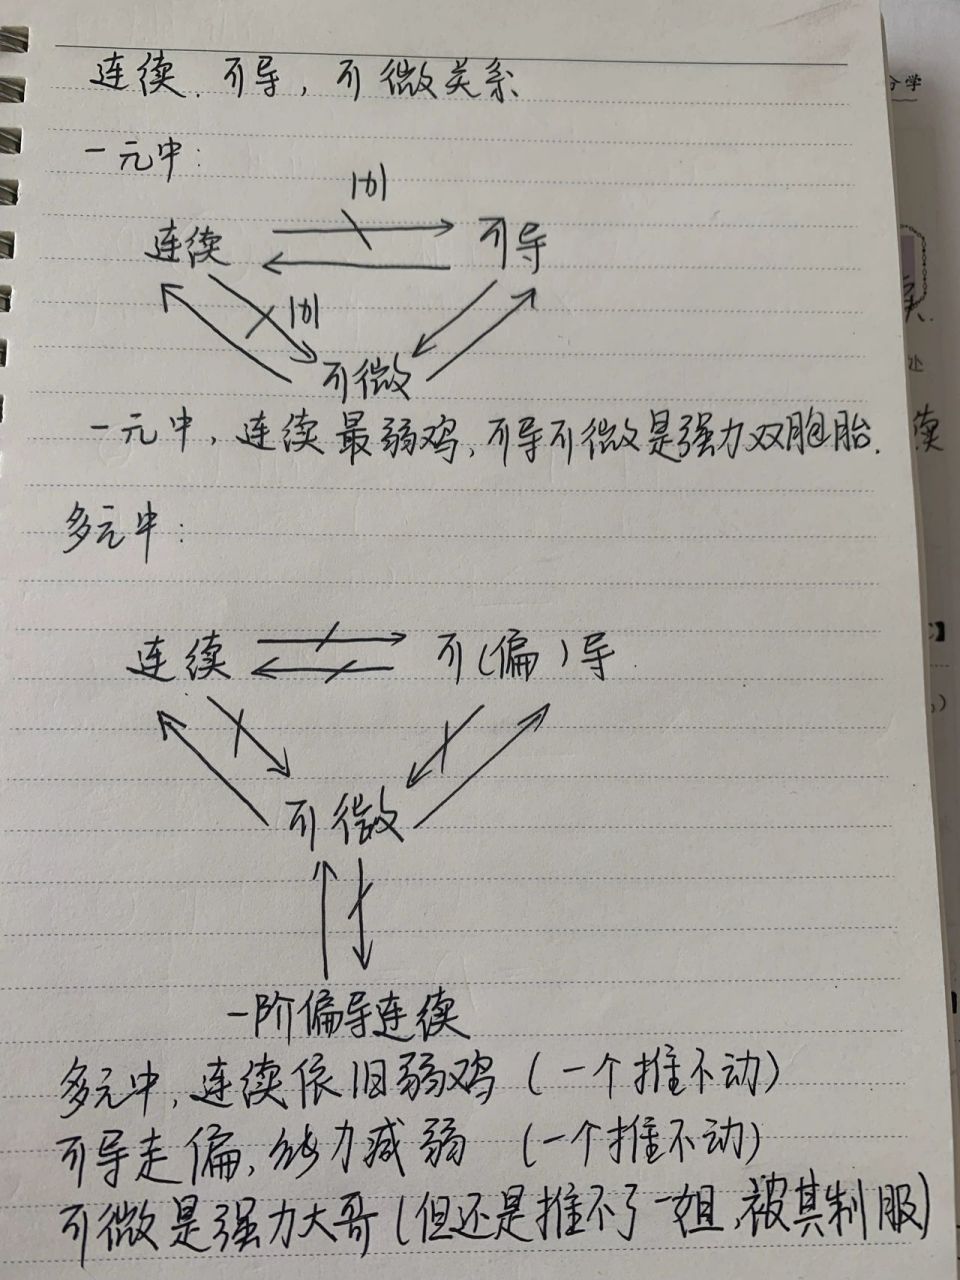 连续、可导，可微关系
分学
一元中：
|x|
连续
可导
|x|
可微
处
一元中，连续最弱鸡，可导可微是强力双胞胎.
续
多元中：
连续
可(偏)导
可微
一阶偏导连续
多元中，连续依旧弱鸡（一个推不动）
可导走偏，能力减弱（一个推不动）
可微是强力大哥（但还是推不了一姐，被其制服）